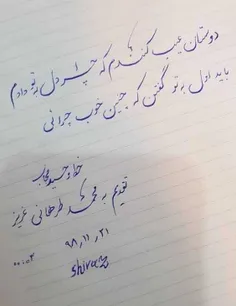 دوستان عیب کنندم که چرا دل به تو دادم
باید اول به تو گفتن که چنین خوب چرائی
خط وحید
تقدیم به محمد طرخانی عزیز
۹۸,۱۱,۲۱
shiraz